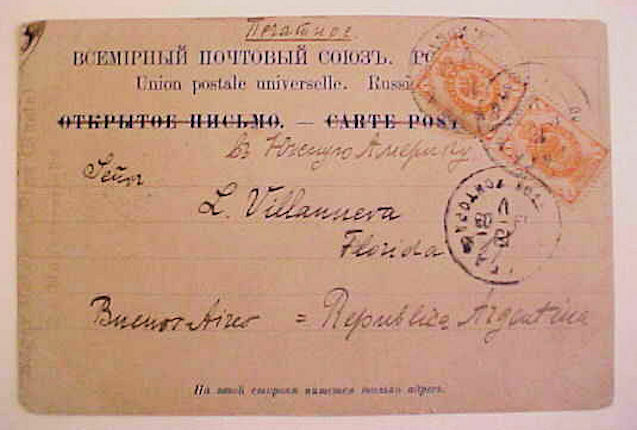 Печатное
ВСЕМІРНЫЙ ПОЧТОВЫЙ СОЮЗЪ.
Union postale universelle. Russi
ОТКРЫТОЕ ПИСЬМО. — CARTE POST
въ Южную Америку
Señor
L. Villanueva
Florida
Buenos Aires = Republica Argentina
На этой сторонѣ пишется только адресъ.